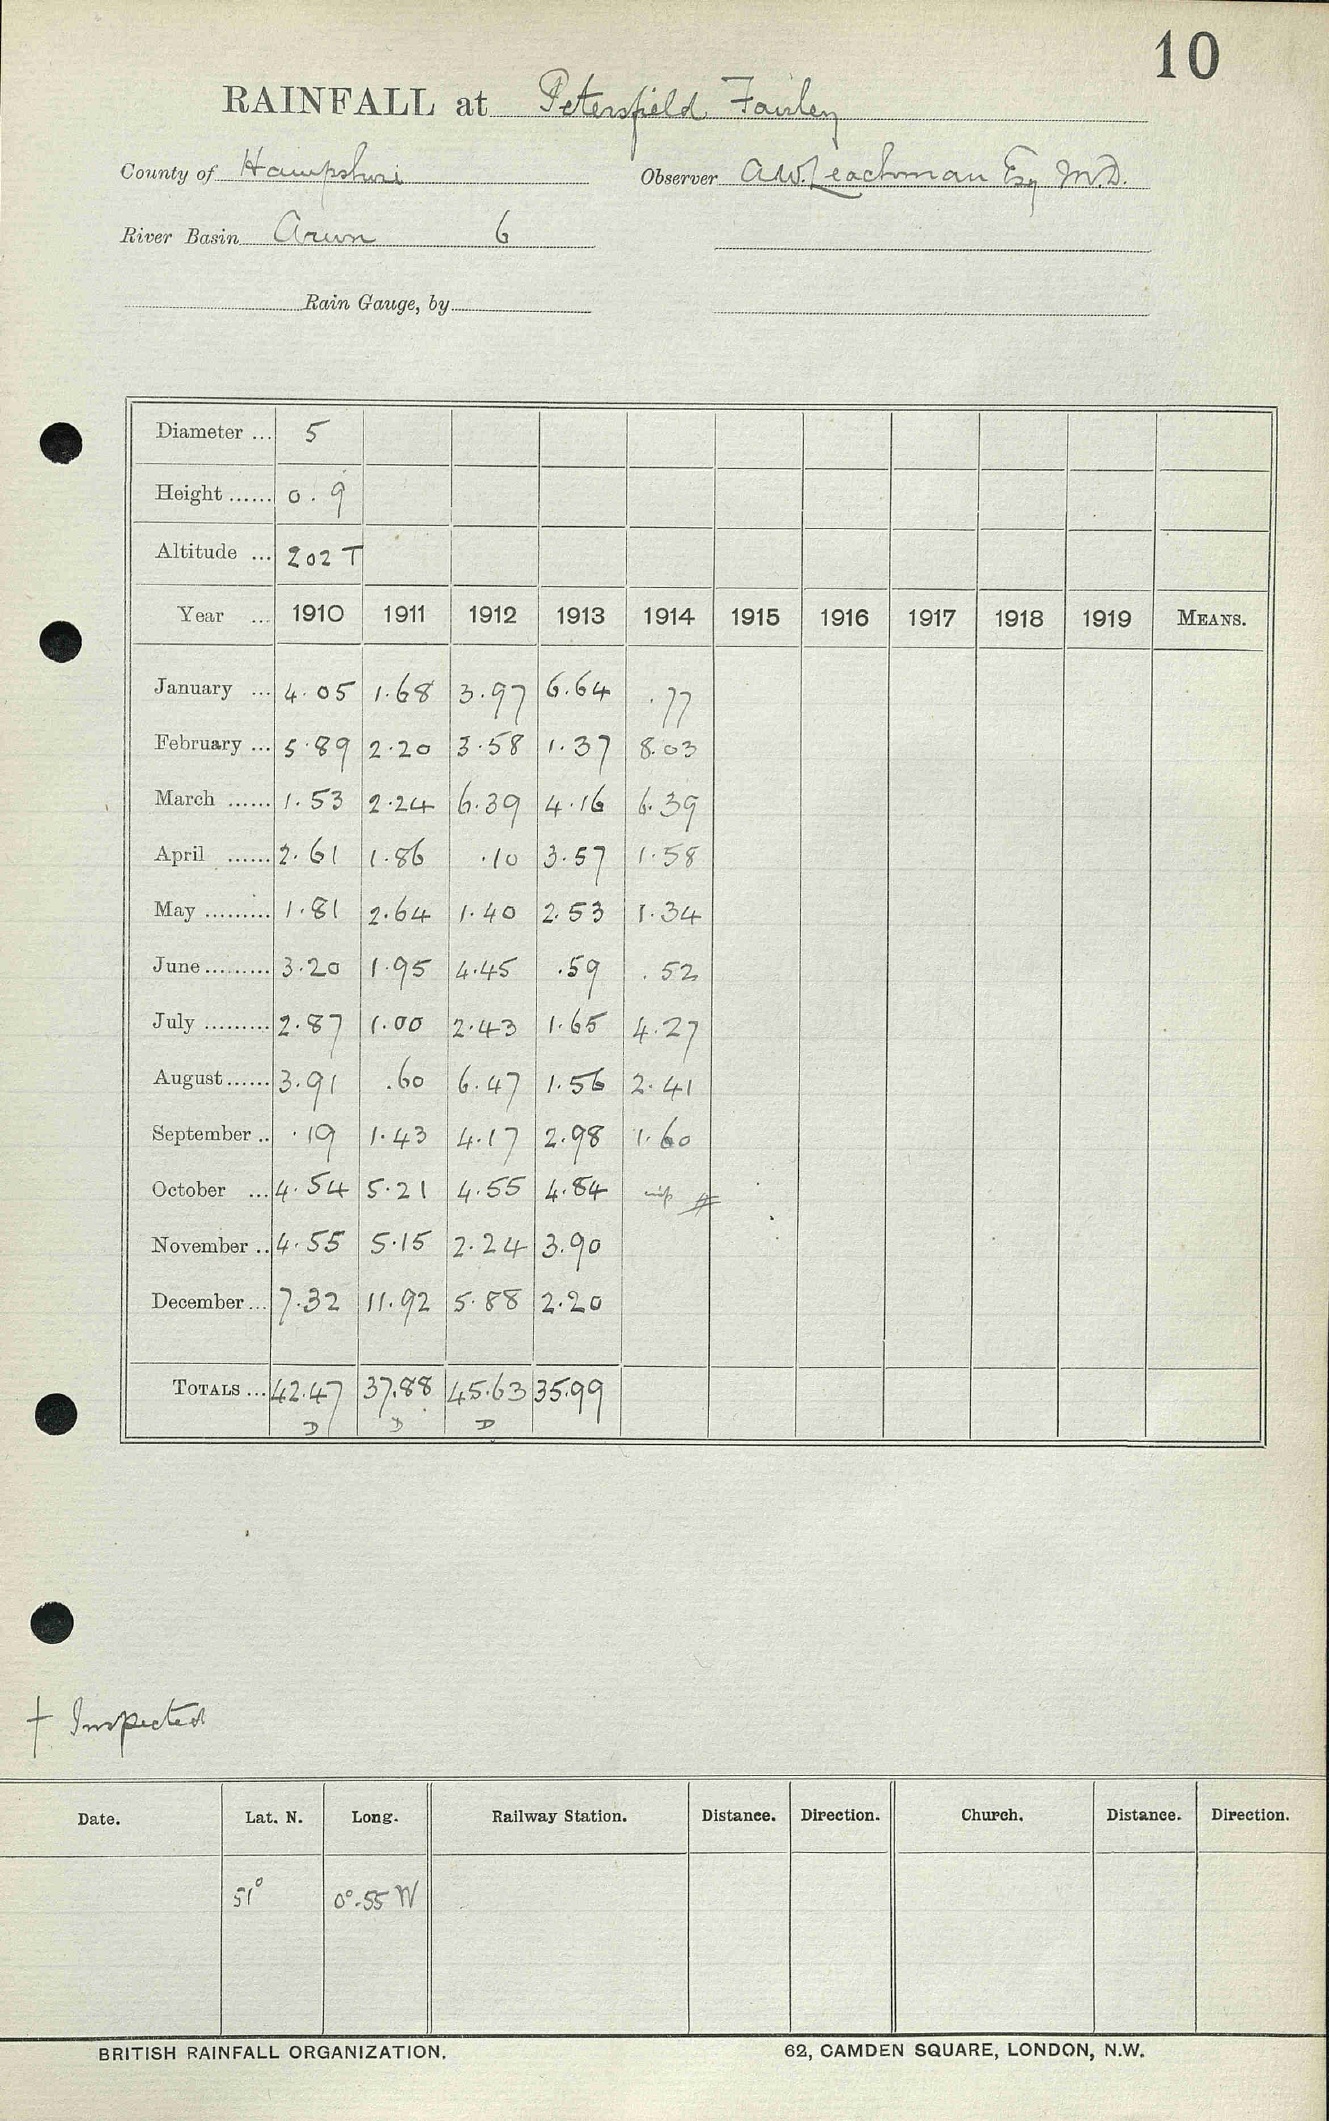 10
RAINFALL at Petersfield Fairley
County of Hampshire Observer A.W. Leachman Esq M.D.
River Basin Arun 6
Rain Gauge, by
Diameter ... 5
Height ...... 0.9
Altitude ... 202 T
Year ... 1910 1911 1912 1913 1914 1915 1916 1917 1918 1919 MEANS.
January ... 4.05 1.68 3.97 6.64 .77
February ... 5.89 2.20 3.58 1.37 8.03
March ...... 1.53 2.24 6.39 4.16 6.39
April ...... 2.61 1.86 .10 3.57 1.58
May ......... 1.81 2.64 1.40 2.53 1.34
June ......... 3.20 1.95 4.45 .59 .52
July ......... 2.87 1.00 2.43 1.65 4.27
August ...... 3.91 .60 6.47 1.56 2.41
September .. .19 1.43 4.17 2.98 1.60
October ... 4.54 5.21 4.55 4.84
November .. 4.55 5.15 2.24 3.90
December ... 7.32 11.92 5.88 2.20
TOTALS ... 42.47 37.88 45.63 35.99
D D D
† Inspected
Date. Lat. N. Long. Railway Station. Distance. Direction. Church. Distance. Direction.
51° 0°.55 W
BRITISH RAINFALL ORGANIZATION. 62, CAMDEN SQUARE, LONDON, N.W.